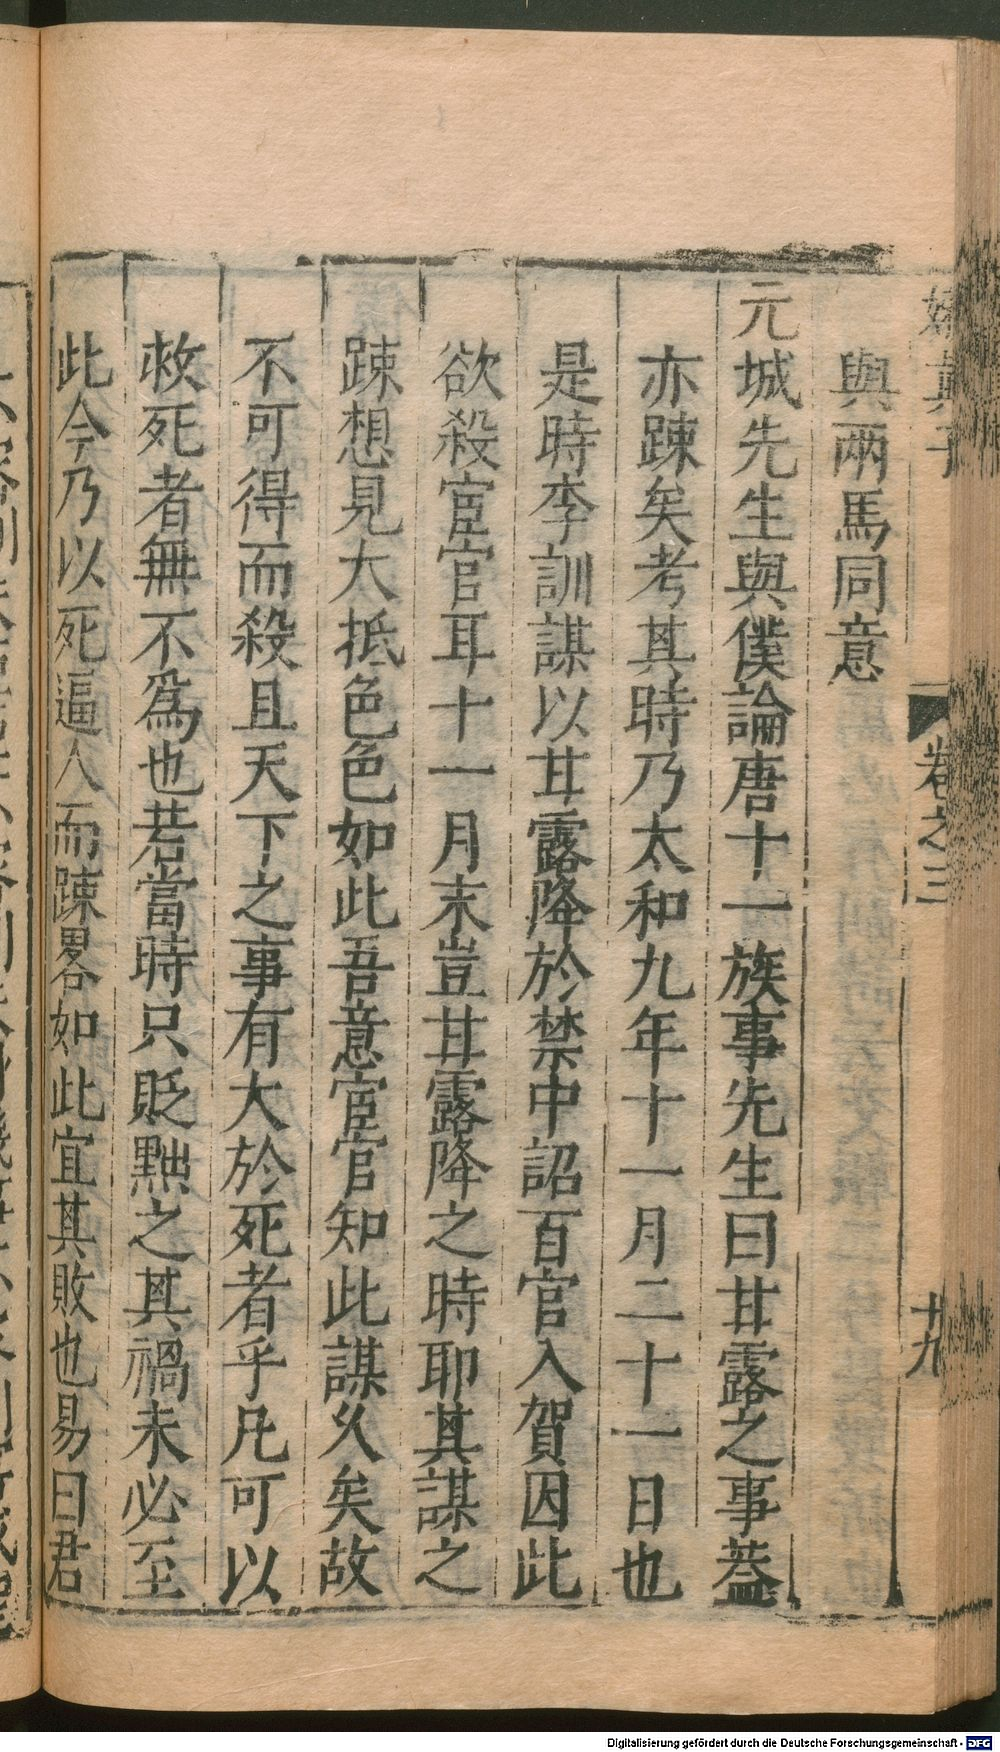 真子
卷之三
十九
與兩馬同意
元城先生與僕論唐十一族事先生曰甘露之事蓋
亦踈矣考其時乃太和九年十一月二十一日也
是時李訓謀以甘露降於禁中詔百官入賀因此
欲殺宦官耳十一月末豈甘露降之時耶其謀之
踈想見大抵色色如此吾意宦官知此謀久矣故
不可得而殺且天下之事有大於死者乎凡可以
救死者無不爲也若當時只貶黜之其禍未必至
此今乃以死逼人而踈畧如此宜其敗也易曰君
Digitalisierung gefördert durch die Deutsche Forschungsgemeinschaft - DFG